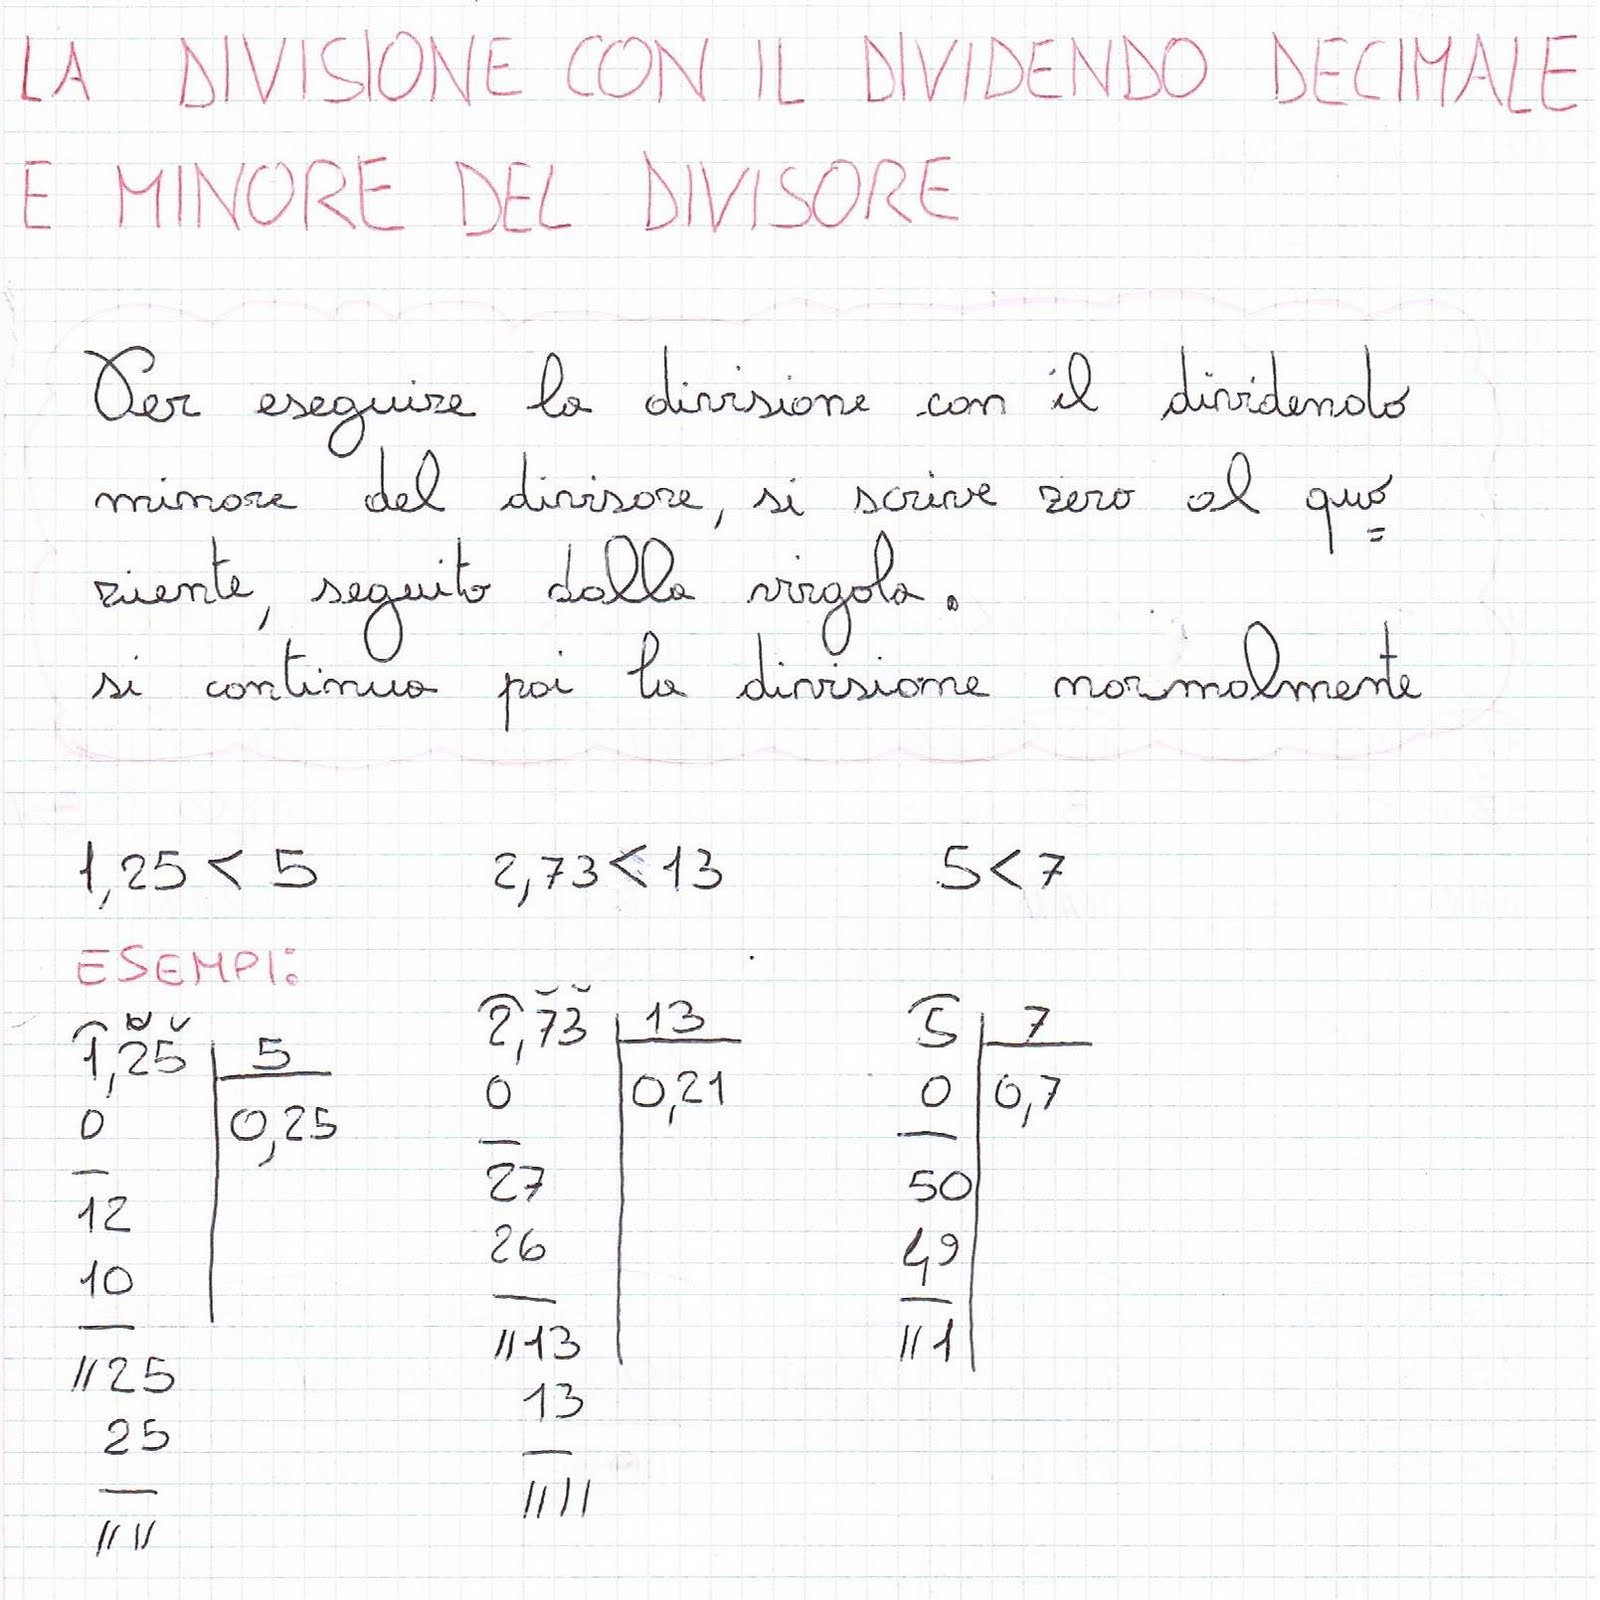 LA DIVISIONE CON IL DIVIDENDO DECIMALE
E MINORE DEL DIVISORE
Per eseguire la divisione con il dividendo
minore del divisore, si scrive zero al quo=
ziente, seguito dalla virgola.
si continua poi la divisione normalmente
1,25 < 5 2,73 < 13 5 < 7
ESEMPI:
1,25 | 5
0 | 0,25
12
10
//25
25
// //
2,73 | 13
0 | 0,21
27
26
//13
13
////
5 | 7
0 | 0,7
50
49
//1